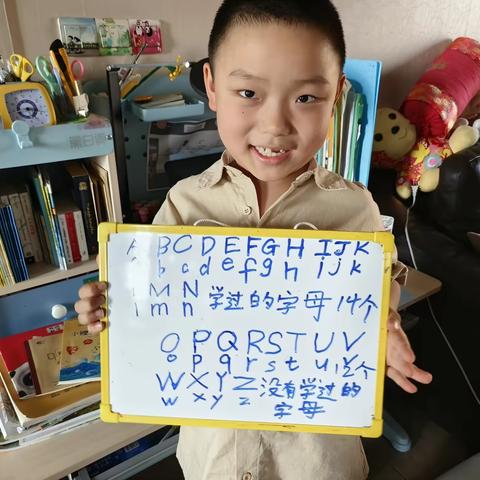 A B C D E F G H I J K
a b c d e f g h i j k
L M N 学过的字母14个
l m n
O P Q R S T U V
o p q r s t u v 12个
W X Y Z 没有学过的
w x y z 字母